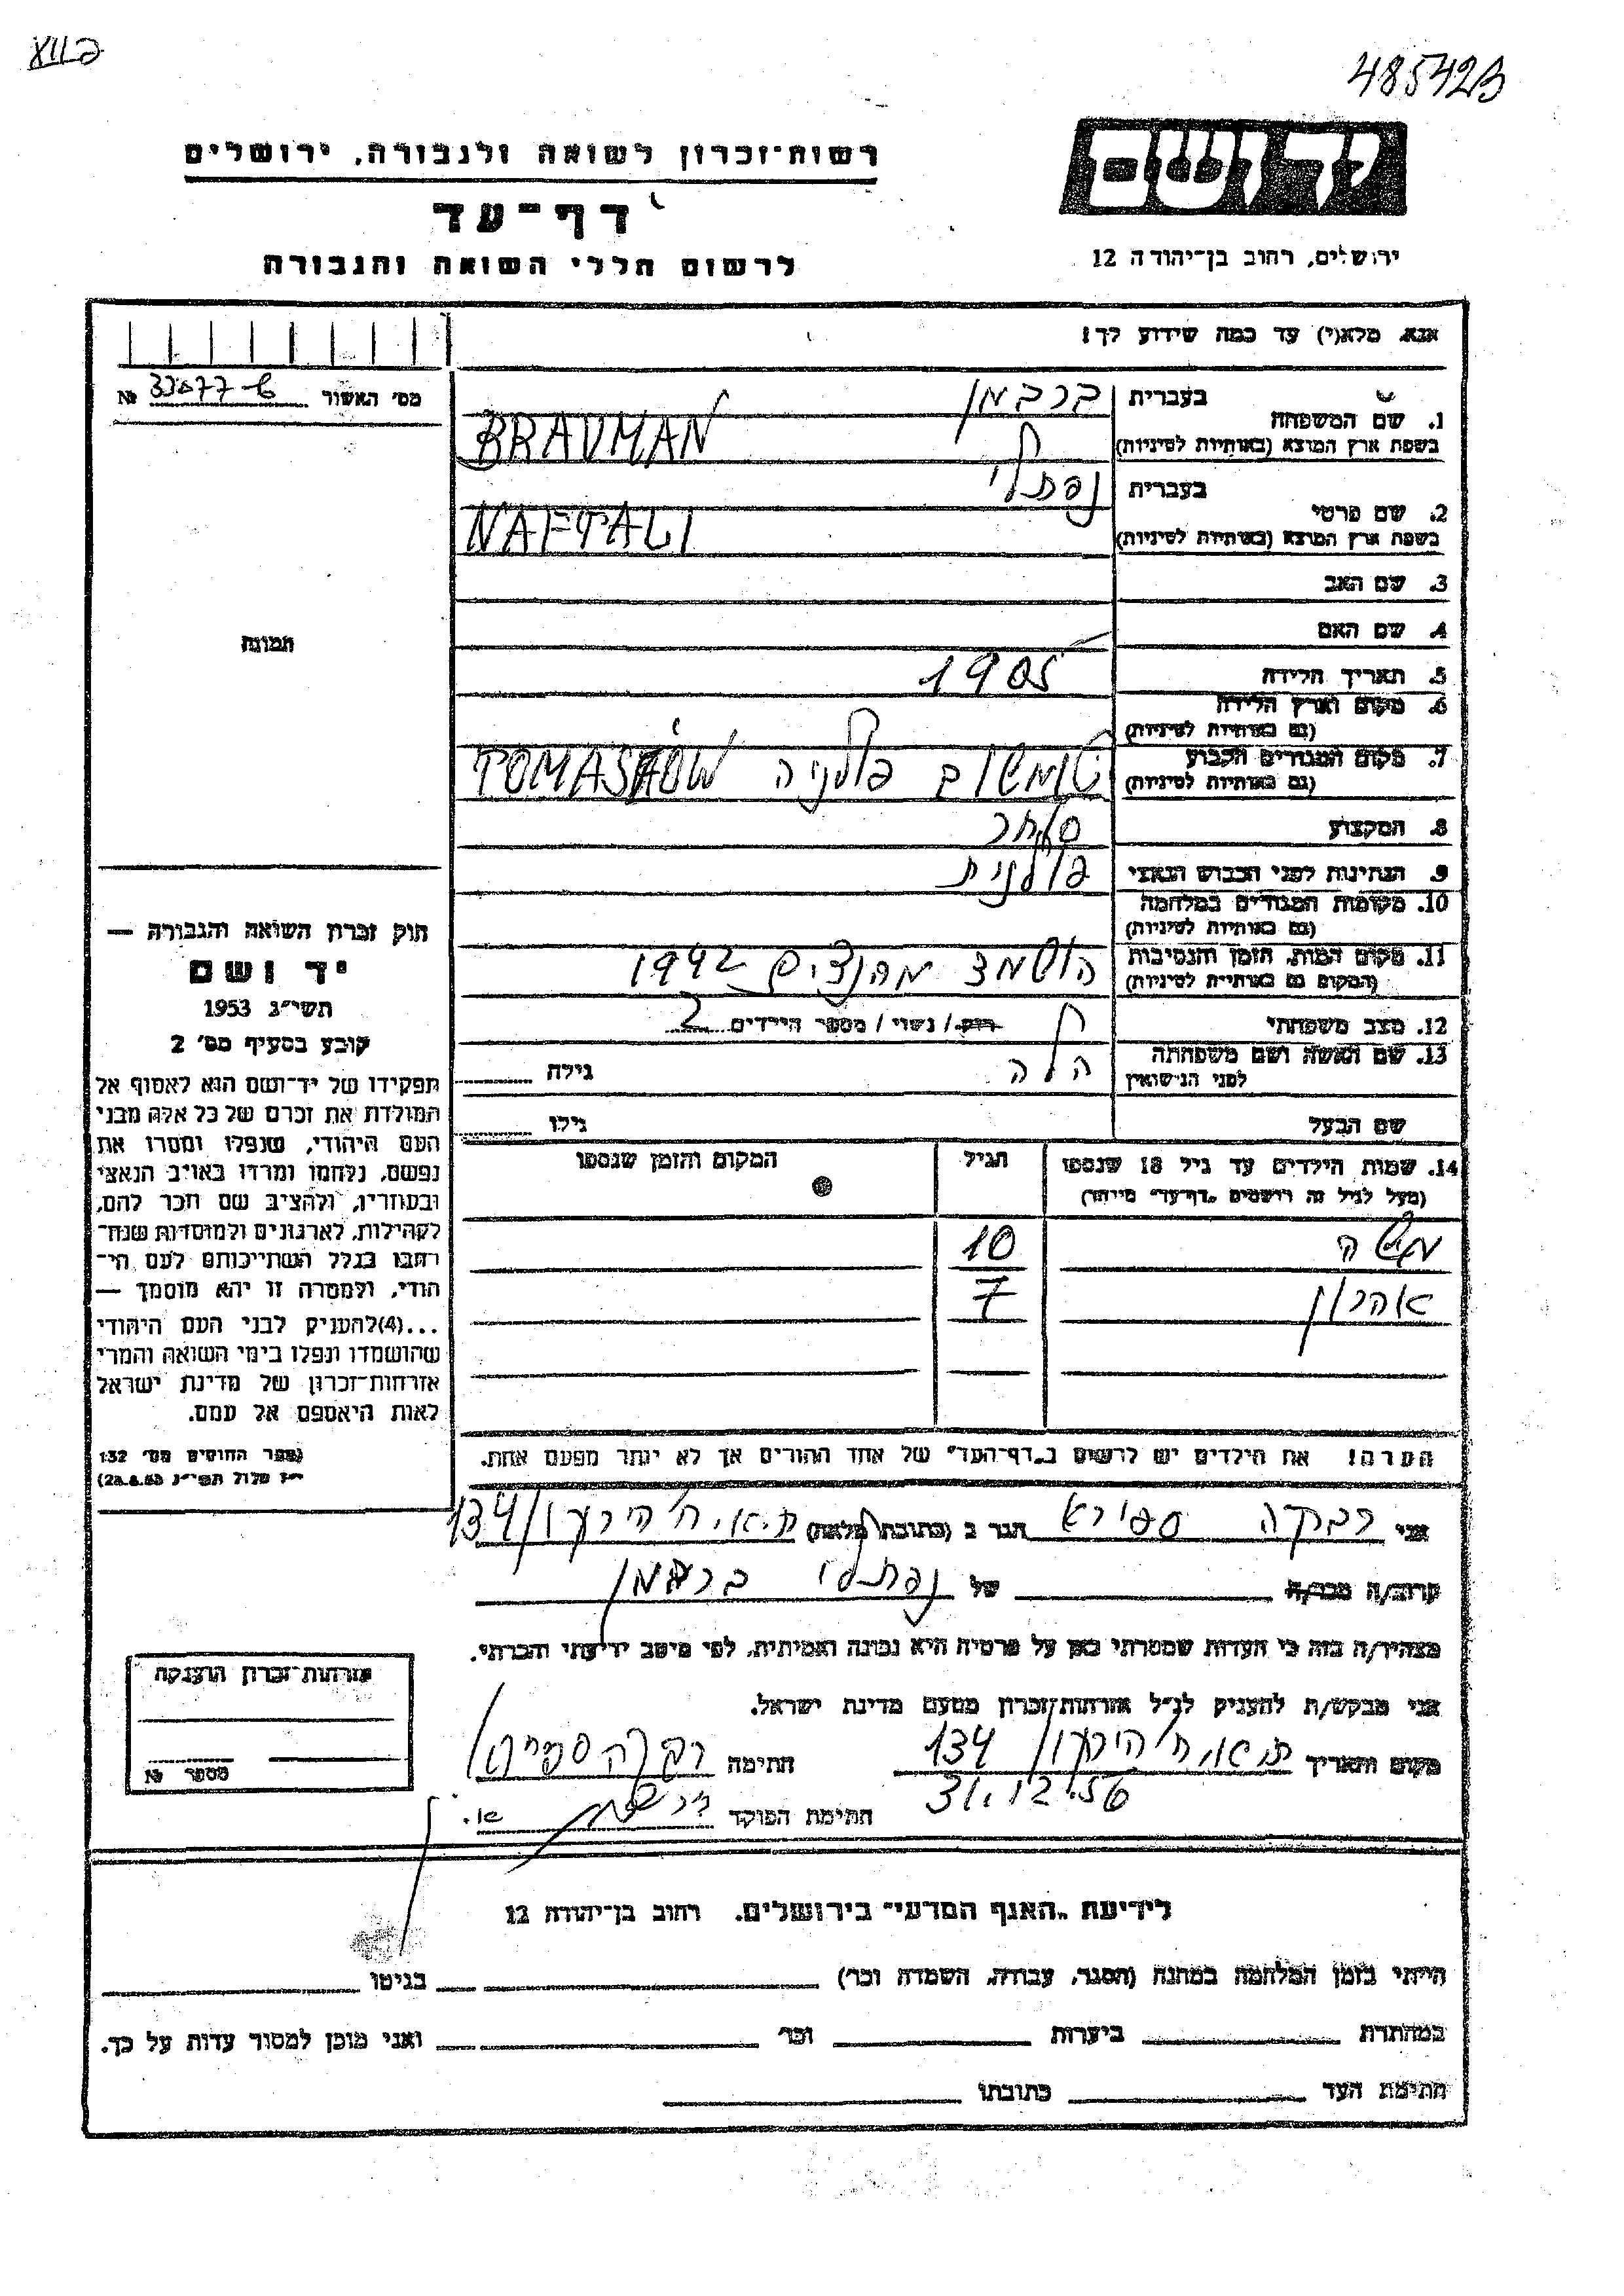 485423
רשות־זכרון לשואה ולגבורה, ירושלים
יד ושם
דף־עד
לרשום חללי השואה והגבורה
ירושלים, רחוב בן־יהודה 12
אנא, מלא(י) עד כמה שידוע לך!
מס׳ האשור №
1. שם המשפחה
בעברית
בשפת ארץ המוצא (באותיות לטיניות)
BRAUMAN
2. שם פרטי
בעברית נפתלי
בשפת ארץ המוצא (באותיות לטיניות)
NAFTALI
3. שם האב
4. שם האם
5. תאריך הלידה 1905
6. מקום וארץ הלידה
(גם באותיות לטיניות)
7. מקום המגורים הקבוע
(גם באותיות לטיניות)
פולניה
8. המקצוע סוחר
9. הנתינות לפני הכבוש הנאצי פולנית
10. מקומות המגורים במלחמה
(גם באותיות לטיניות)
11. מקום המות, הזמן והנסיבות
(המקום גם באותיות לטיניות)
הושמד מהנצים 1942
12. מצב משפחתי רוק / נשוי / מספר הילדים 2
13. שם האשה ושם משפחתה
לפני הנישואין
גילה
שם הבעל גילו
14. שמות הילדים עד גיל 18 שנספו
(מעל לגיל זה רושמים „דף־עד״ מיוחד)
הגיל
המקום והזמן שנספו
משה 10
אהרון 7
הערה! את הילדים יש לרשום ב„דף־העד״ של אחד ההורים אך לא יותר מפעם אחת.
תמונה
חוק זכרון השואה והגבורה —
יד ושם
תשי״ג 1953
קובע בסעיף מס׳ 2
תפקידו של יד־ושם הוא לאסוף אל
המולדת את זכרם של כל אלה מבני
העם היהודי, שנפלו ומסרו את
נפשם, נלחמו ומרדו באויב הנאצי
ובעוזריו, ולהציב שם וזכר להם,
לקהילות, לארגונים ולמוסדות שנח־
רבו בגלל השתייכותם לעם הי־
הודי, ולמטרה זו יהא מוסמך —
...(4)להעניק לבני העם היהודי
שהושמדו ונפלו בימי השואה והמרי
אזרחות־זכרון של מדינת ישראל
לאות היאספם אל עמם.
(ספר החוקים מס׳ 132
אני רבקה ספירא הגר ב (כתובת מלאה) ת.א. ח׳ הירקון 134
קרוב/ה מכר/ה של נפתלי
מצהיר/ה בזה כי העדות שמסרתי כאן על פרטיה היא נכונה ואמיתית, לפי מיטב ידיעתי והכרתי.
אני מבקש/ת להעניק לנ״ל אזרחות־זכרון מטעם מדינת ישראל.
מקום ותאריך ת.א. ח׳ הירקון 134 חתימה
31.12.56
חתימת הפוקד
אזרחות־זכרון הוענקה
מספר №
לידיעת „האגף המדעי״ בירושלים. רחוב בן־יהודה 12
הייתי בזמן המלחמה במחנה (הסגר, עבודה, השמדה וכר) בגיטו
במחתרת ביערות וכר ואני מוכן למסור עדות על כך.
חתימת העד כתובתו